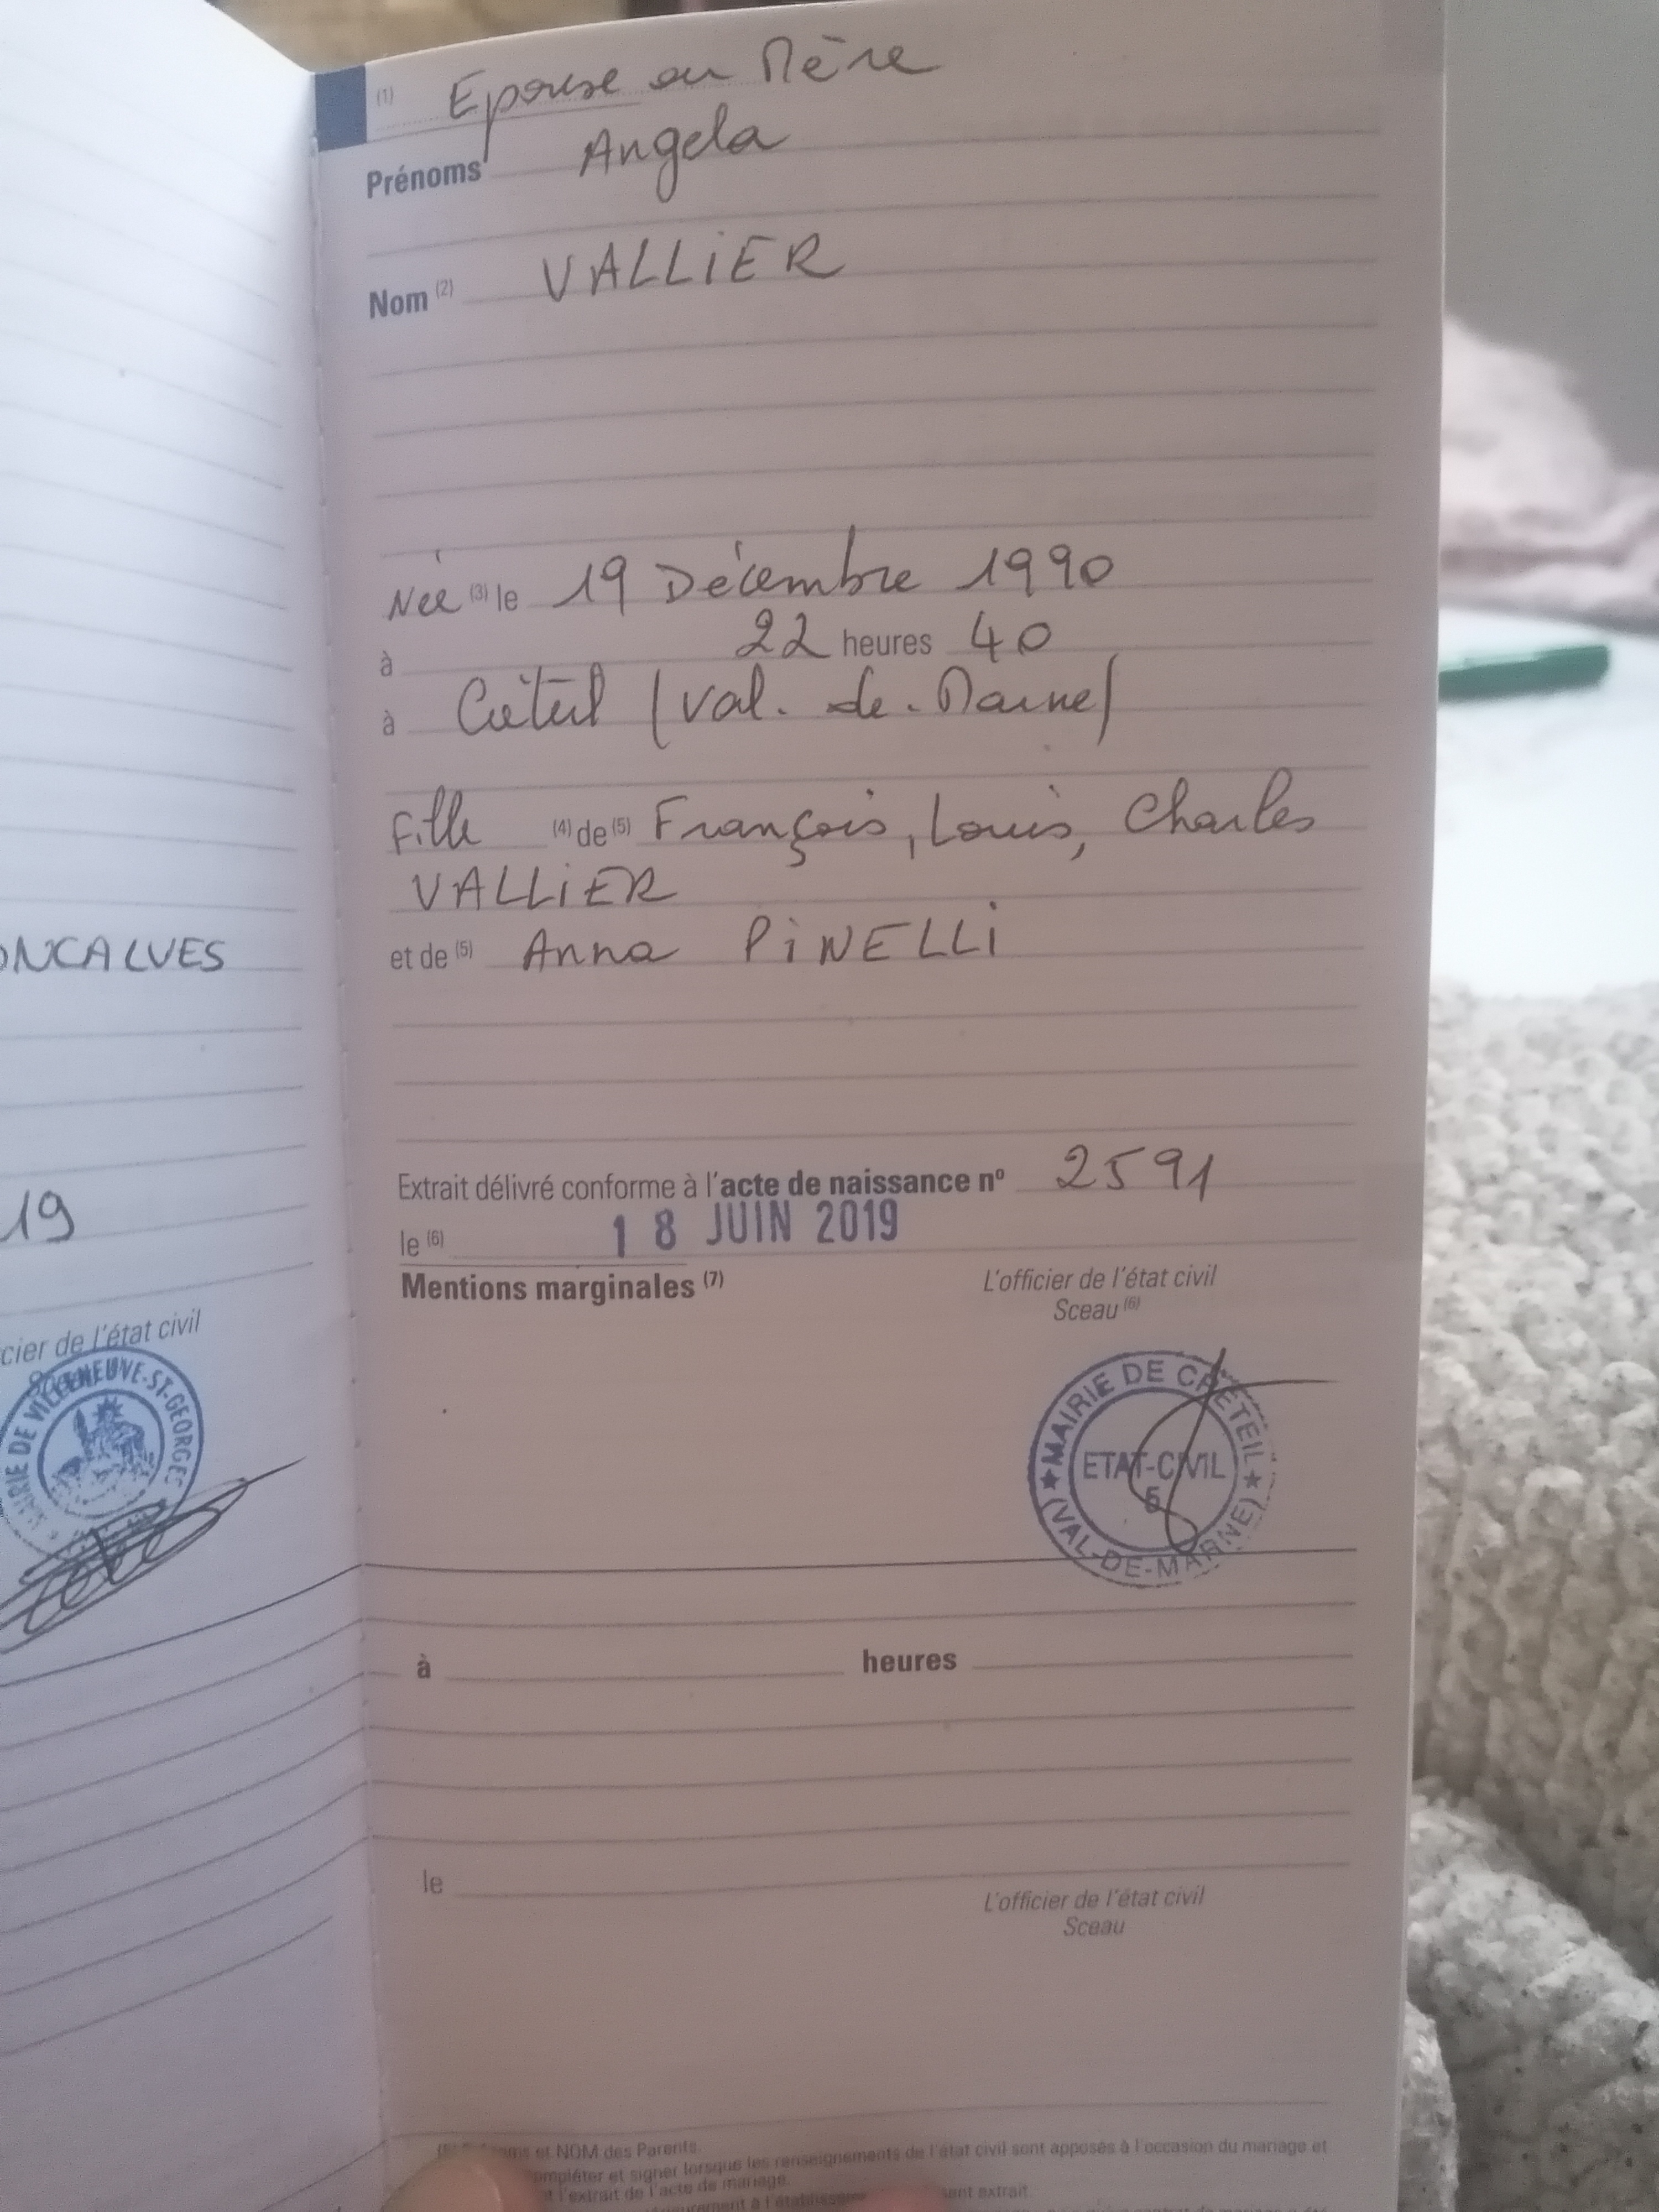 ONCALVES
19
cier de l'état civil
MAIRIE DE VILLENEUVE-ST-GEORGES
(1) Epouse ou Mère
Prénoms Angela
Nom (2) VALLIER
Née (3) le 19 Décembre 1990
à 22 heures 40
à Créteil (Val-de-Marne)
Fille (4) de (5) François, Louis, Charles
VALLIER
et de (5) Anna PINELLI
Extrait délivré conforme à l'acte de naissance nº 2591
le (6) 18 JUIN 2019
Mentions marginales (7)
L'officier de l'état civil
Sceau (6)
MAIRIE DE CRETEIL
ETAT-CIVIL
5
(VAL-DE-MARNE)
à heures
le
L'officier de l'état civil
Sceau
et NOM des Parents.
compléter et signer lorsque les renseignements de l'état civil sont apposés à l'occasion du mariage et
l'extrait de l'acte de mariage.
extrait